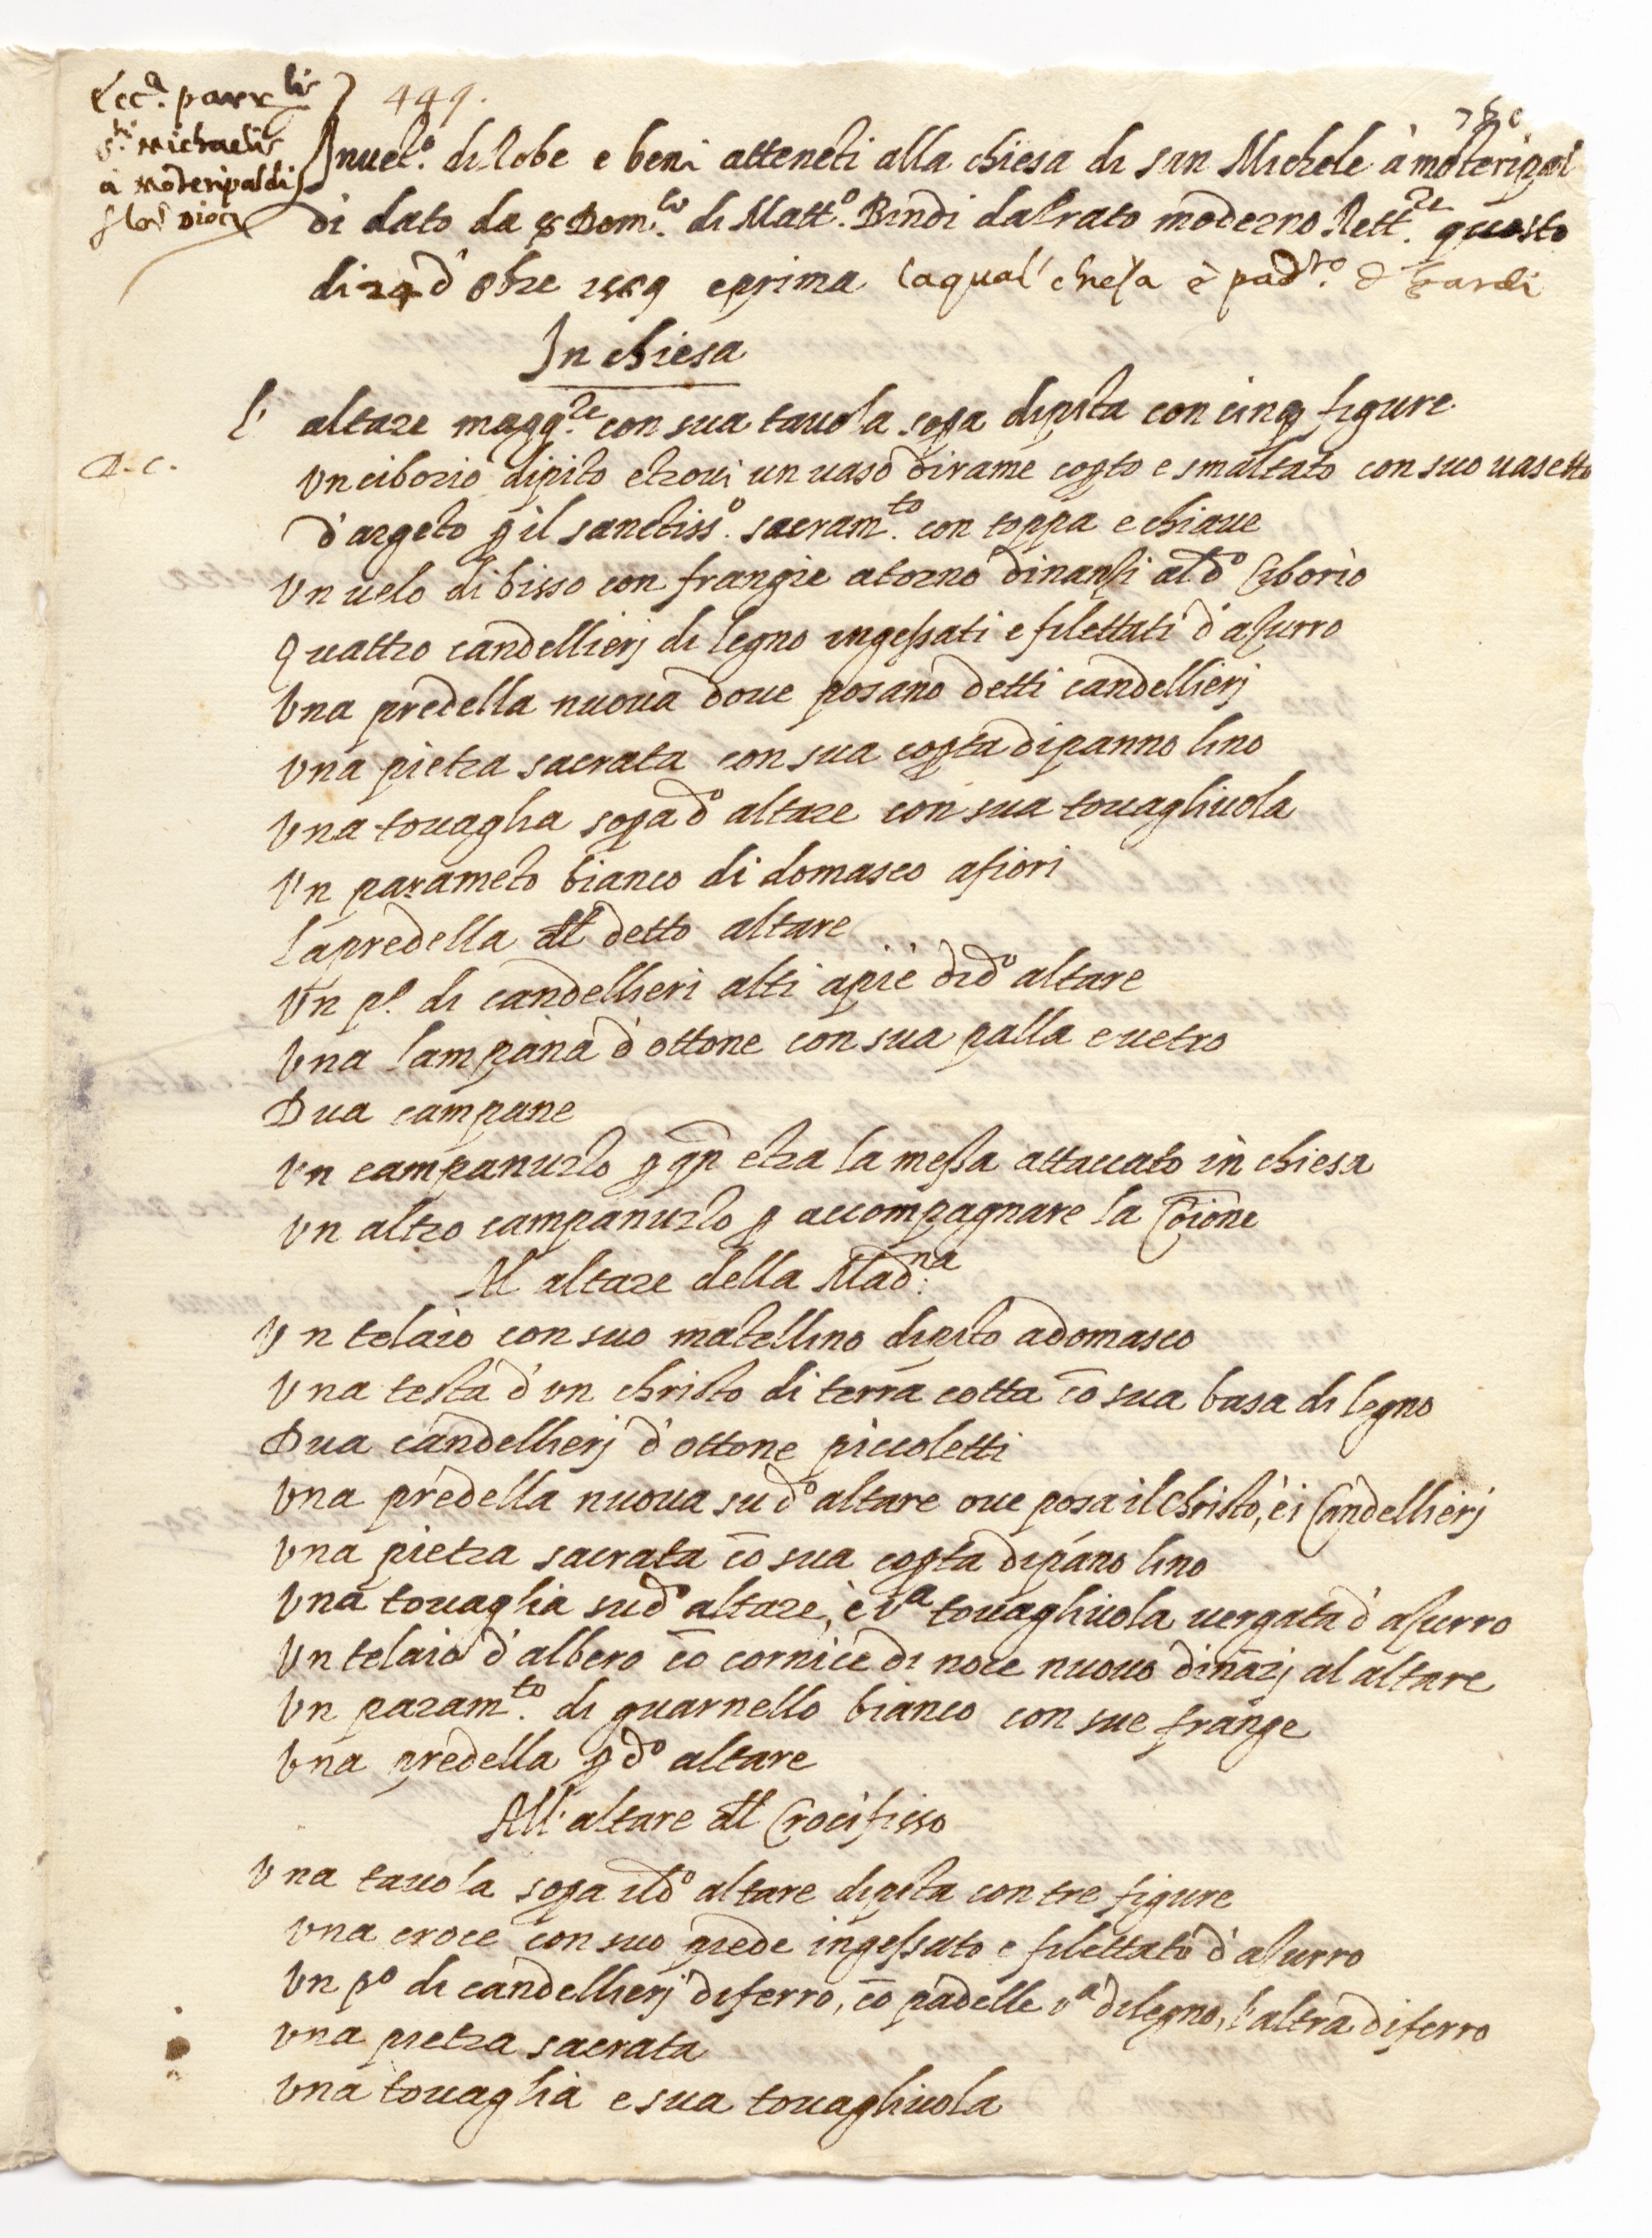 Ecc.a parr.lis
s.ti Michaelis
a Moteripaldi
flor. Dioc.
449.
Inuet.o di robe e beni atteneti alla chiesa di san Michele à moteripal
di dato da Dom.co di Matt.o Bindi da Prato moderno Rett.re questo
di 24 d' 8bre 1569 e prima la qual' chiesa è pad.to d bardi
In chiesa
l' altare magg.re con sua tauola sopa dipita con cinq figure
A. c.
Vn ciborio dipito etroui un uaso di rame copto e smaltato con suo uasetto
d'argeto p il sanctiss.o sacram.to con toppa e chiaue
Vn uelo di bisso con frangie atorno dinanzi al d.o Ciborio
Quattro candellierj di legno ingessati e filettati d'azurro
Vna predella nuoua doue posano detti candellierj
Vna pietra sacrata con sua copta di panno lino
Vna touaglia sopa d.o altare con sua touagliuola
Vn parameto bianco di domasco a fiori
La predella dl detto altare
Vn p.o di candellieri alti a piè di d.o altare
Vna lampana d'ottone con sua palla e uetro
Dua campane
Vn campanuzzo p qn etra la messa attaccato in chiesa
Vn altro campanuzzo p accompagnare la Coione
Al altare della Mad.na
Vn telaio con suo matellino dipito a domasco
Vna testa d'vn christo di terra cotta cō sua basa di legno
Dua candellierj d'ottone piccoletti
Vna predella nuoua su d.o altare oue posa il Christo, e i Candellierj
Vna pietra sacrata cō sua copta di pāno lino
Vna touaglia su d.o altare, è v.a touagliuola uergata d'azurro
Vn telaio d'albero cō cornice di noce nuouo dināzj al altare
Vn param.to di guarnello bianco con sue frange
Vna predella p d.o altare
All' altare dl Crocifisso
Vna tauola sopa il d.o altare dipita con tre figure
Vna croce con suo piede ingessato e filettato d'azurro
Vn p.o di candellierj di ferro, cō padelle v.a di legno, l'altra di ferro
Vna pietra sacrata
Vna touaglia e sua touagliuola